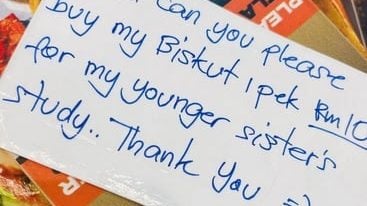 can you please
buy my Biskut 1 pek RM10
for my younger sister's
study.. Thank you =)
PLEA